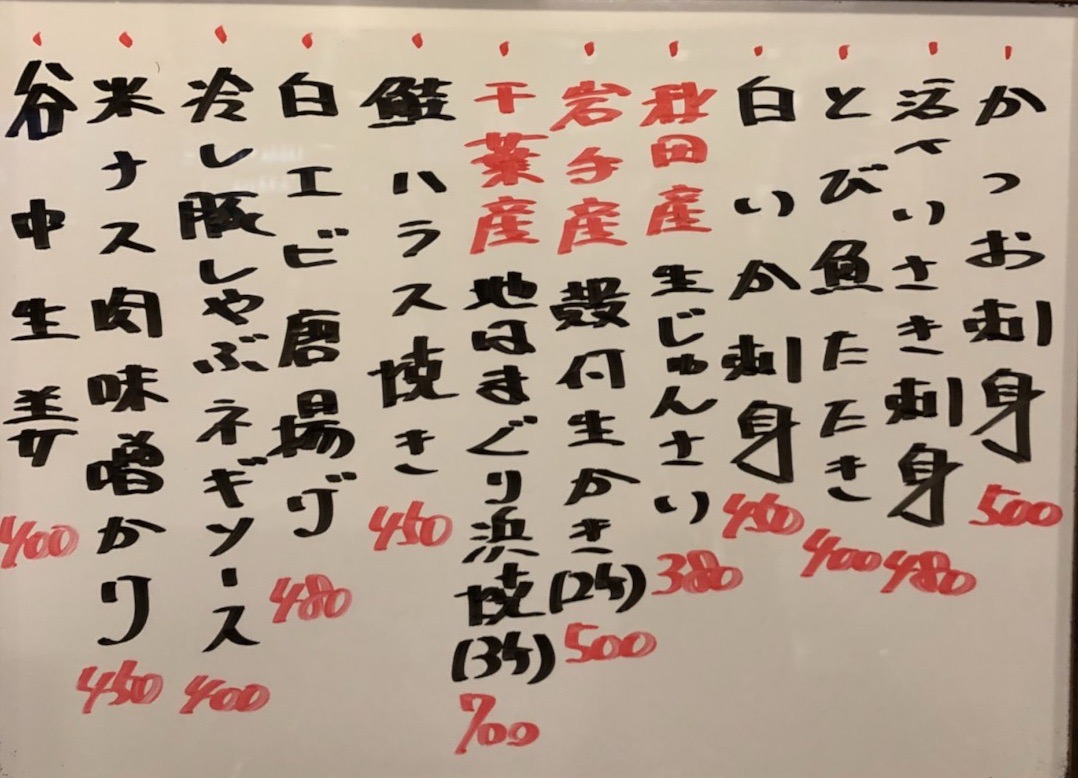 かつお刺身 500
活〆いさき刺身 480
とび魚たたき 400
白いか刺身 450
秋田産 生じゅんさい 380
岩手産 殻付生かき(2ケ) 500
千葉産 地はまぐり浜焼(3ケ) 700
鮭ハラス焼き 450
白エビ唐揚げ 480
冷し豚しゃぶネギソース 400
米ナス肉味噌かけ 450
谷中生姜 400